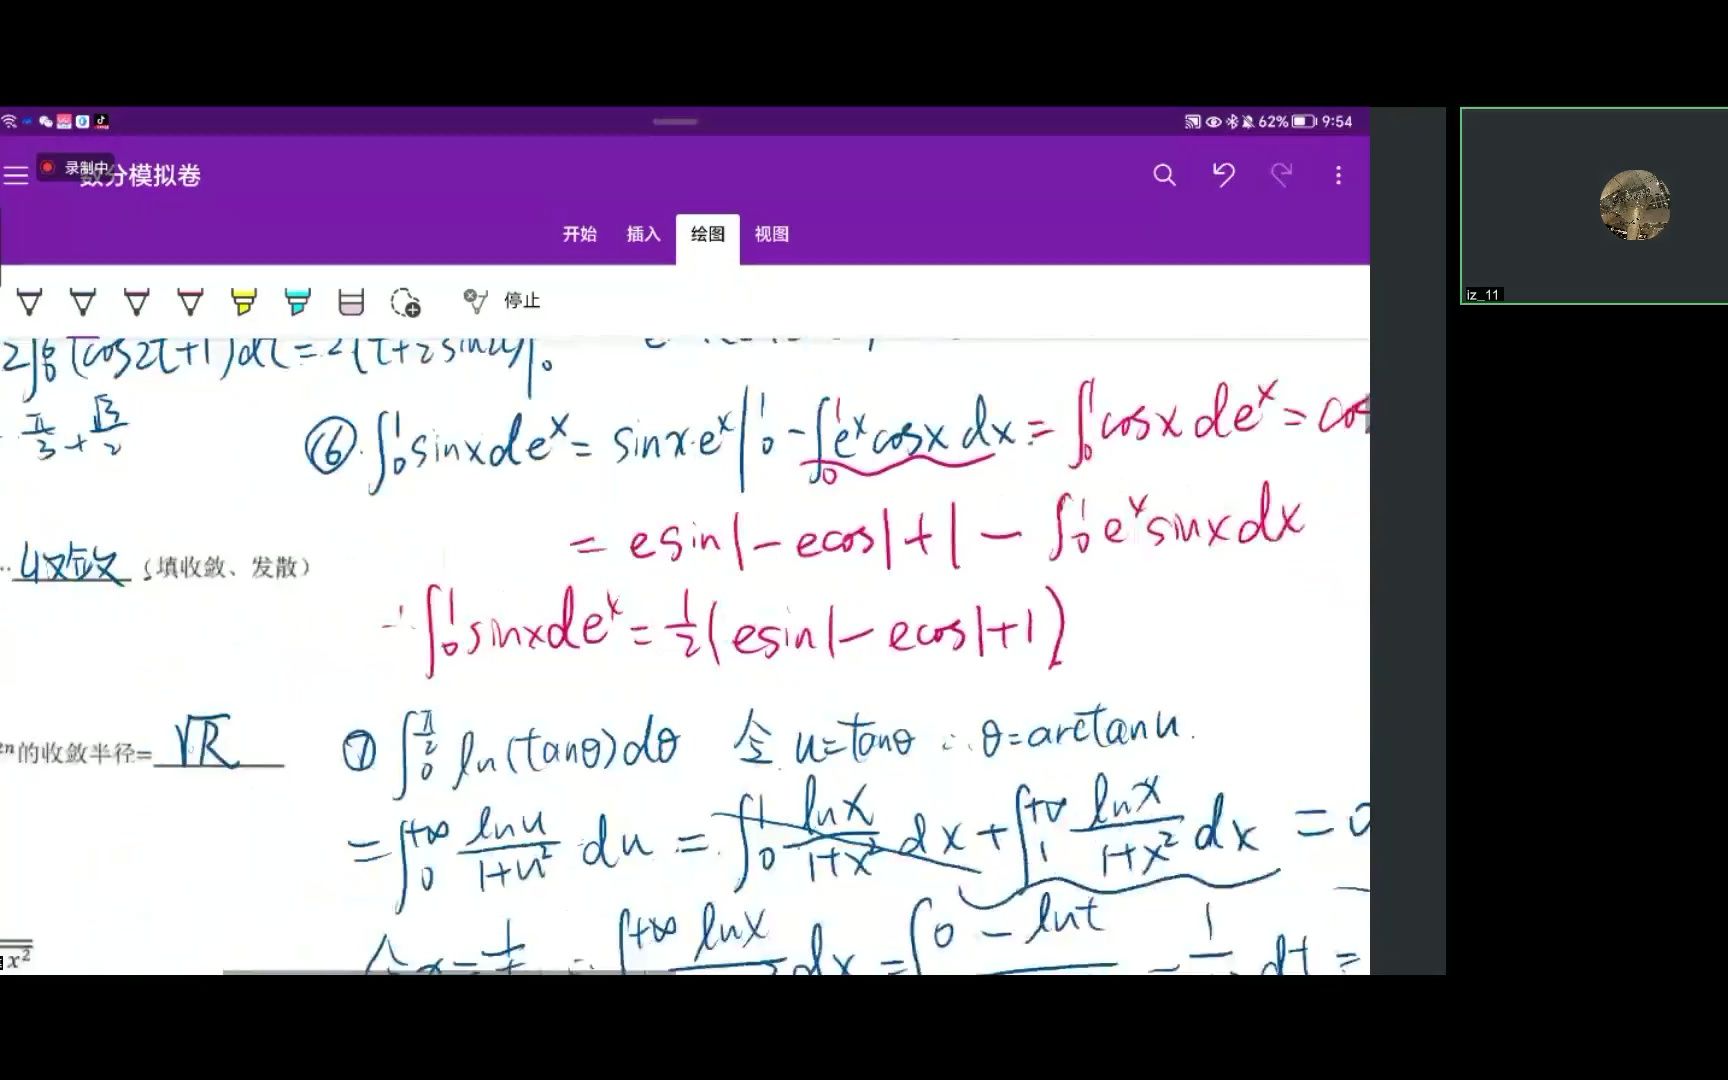 62% 9:54
录制中
数分模拟卷
开始 插入 绘图 视图
停止
π/3 + √3/2
⑥ ∫₀¹ sinx de^x = sinx·e^x |₀¹ - ∫₀¹ e^x cosx dx = ∫₀¹ cosx de^x = cos
= e sin1 - e cos1 + 1 - ∫₀¹ e^x sinx dx
收敛 (填收敛、发散)
∴ ∫₀¹ sinx de^x = 1/2 (e sin1 - e cos1 + 1)
的收敛半径= √R
⑦ ∫₀^(π/2) ln(tanθ)dθ 令 u=tanθ ∴ θ=arctanu.
= ∫₀^(+∞) lnu/(1+u²) du = ∫₀¹ lnx/(1+x²) dx + ∫₁^(+∞) lnx/(1+x²) dx = 0
x²